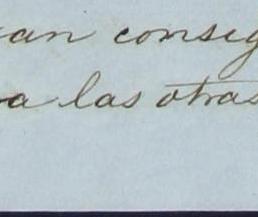 an consig
a las otras